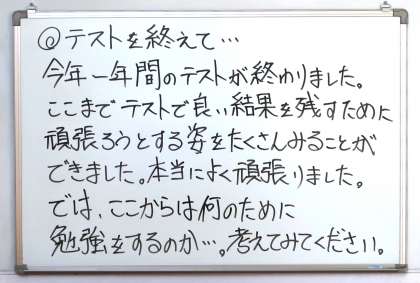 ◎テストを終えて…
今年一年間のテストが終わりました。
ここまでテストで良い結果を残すために
頑張ろうとする姿をたくさんみることが
できました。本当によく頑張りました。
では、ここからは何のために
勉強をするのか…。考えてみてください。